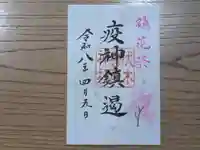 鎮花祭
疫神鎮遏
令和八年四月五日